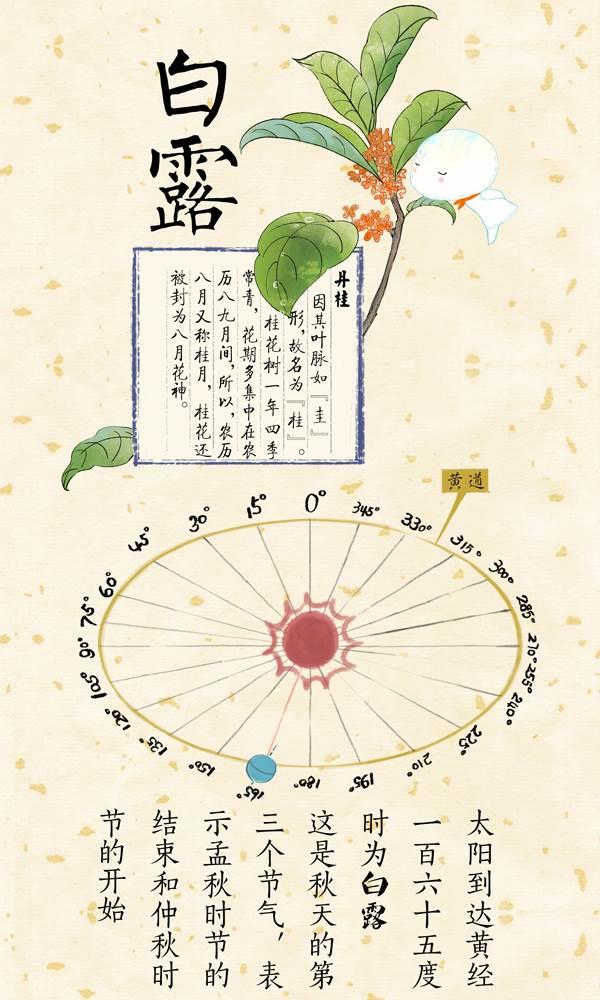 白露
丹桂
因其叶脉如『圭』
形，故名为『桂』。
桂花树一年四季
常青，花期多集中在农
历八九月间，所以，农历
八月又称桂月，桂花还
被封为八月花神。
黄道
0°
345°
330°
315°
300°
285°
270°
255°
240°
225°
210°
195°
180°
165°
150°
135°
120°
105°
90°
75°
60°
45°
30°
15°
太阳到达黄经
一百六十五度
时为白露
这是秋天的第
三个节气，表
示孟秋时节的
结束和仲秋时
节的开始